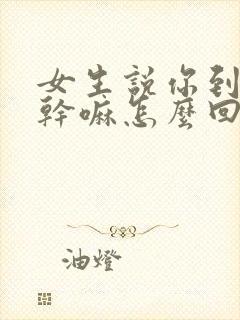 女生說你到
幹嘛怎麼回
油燈